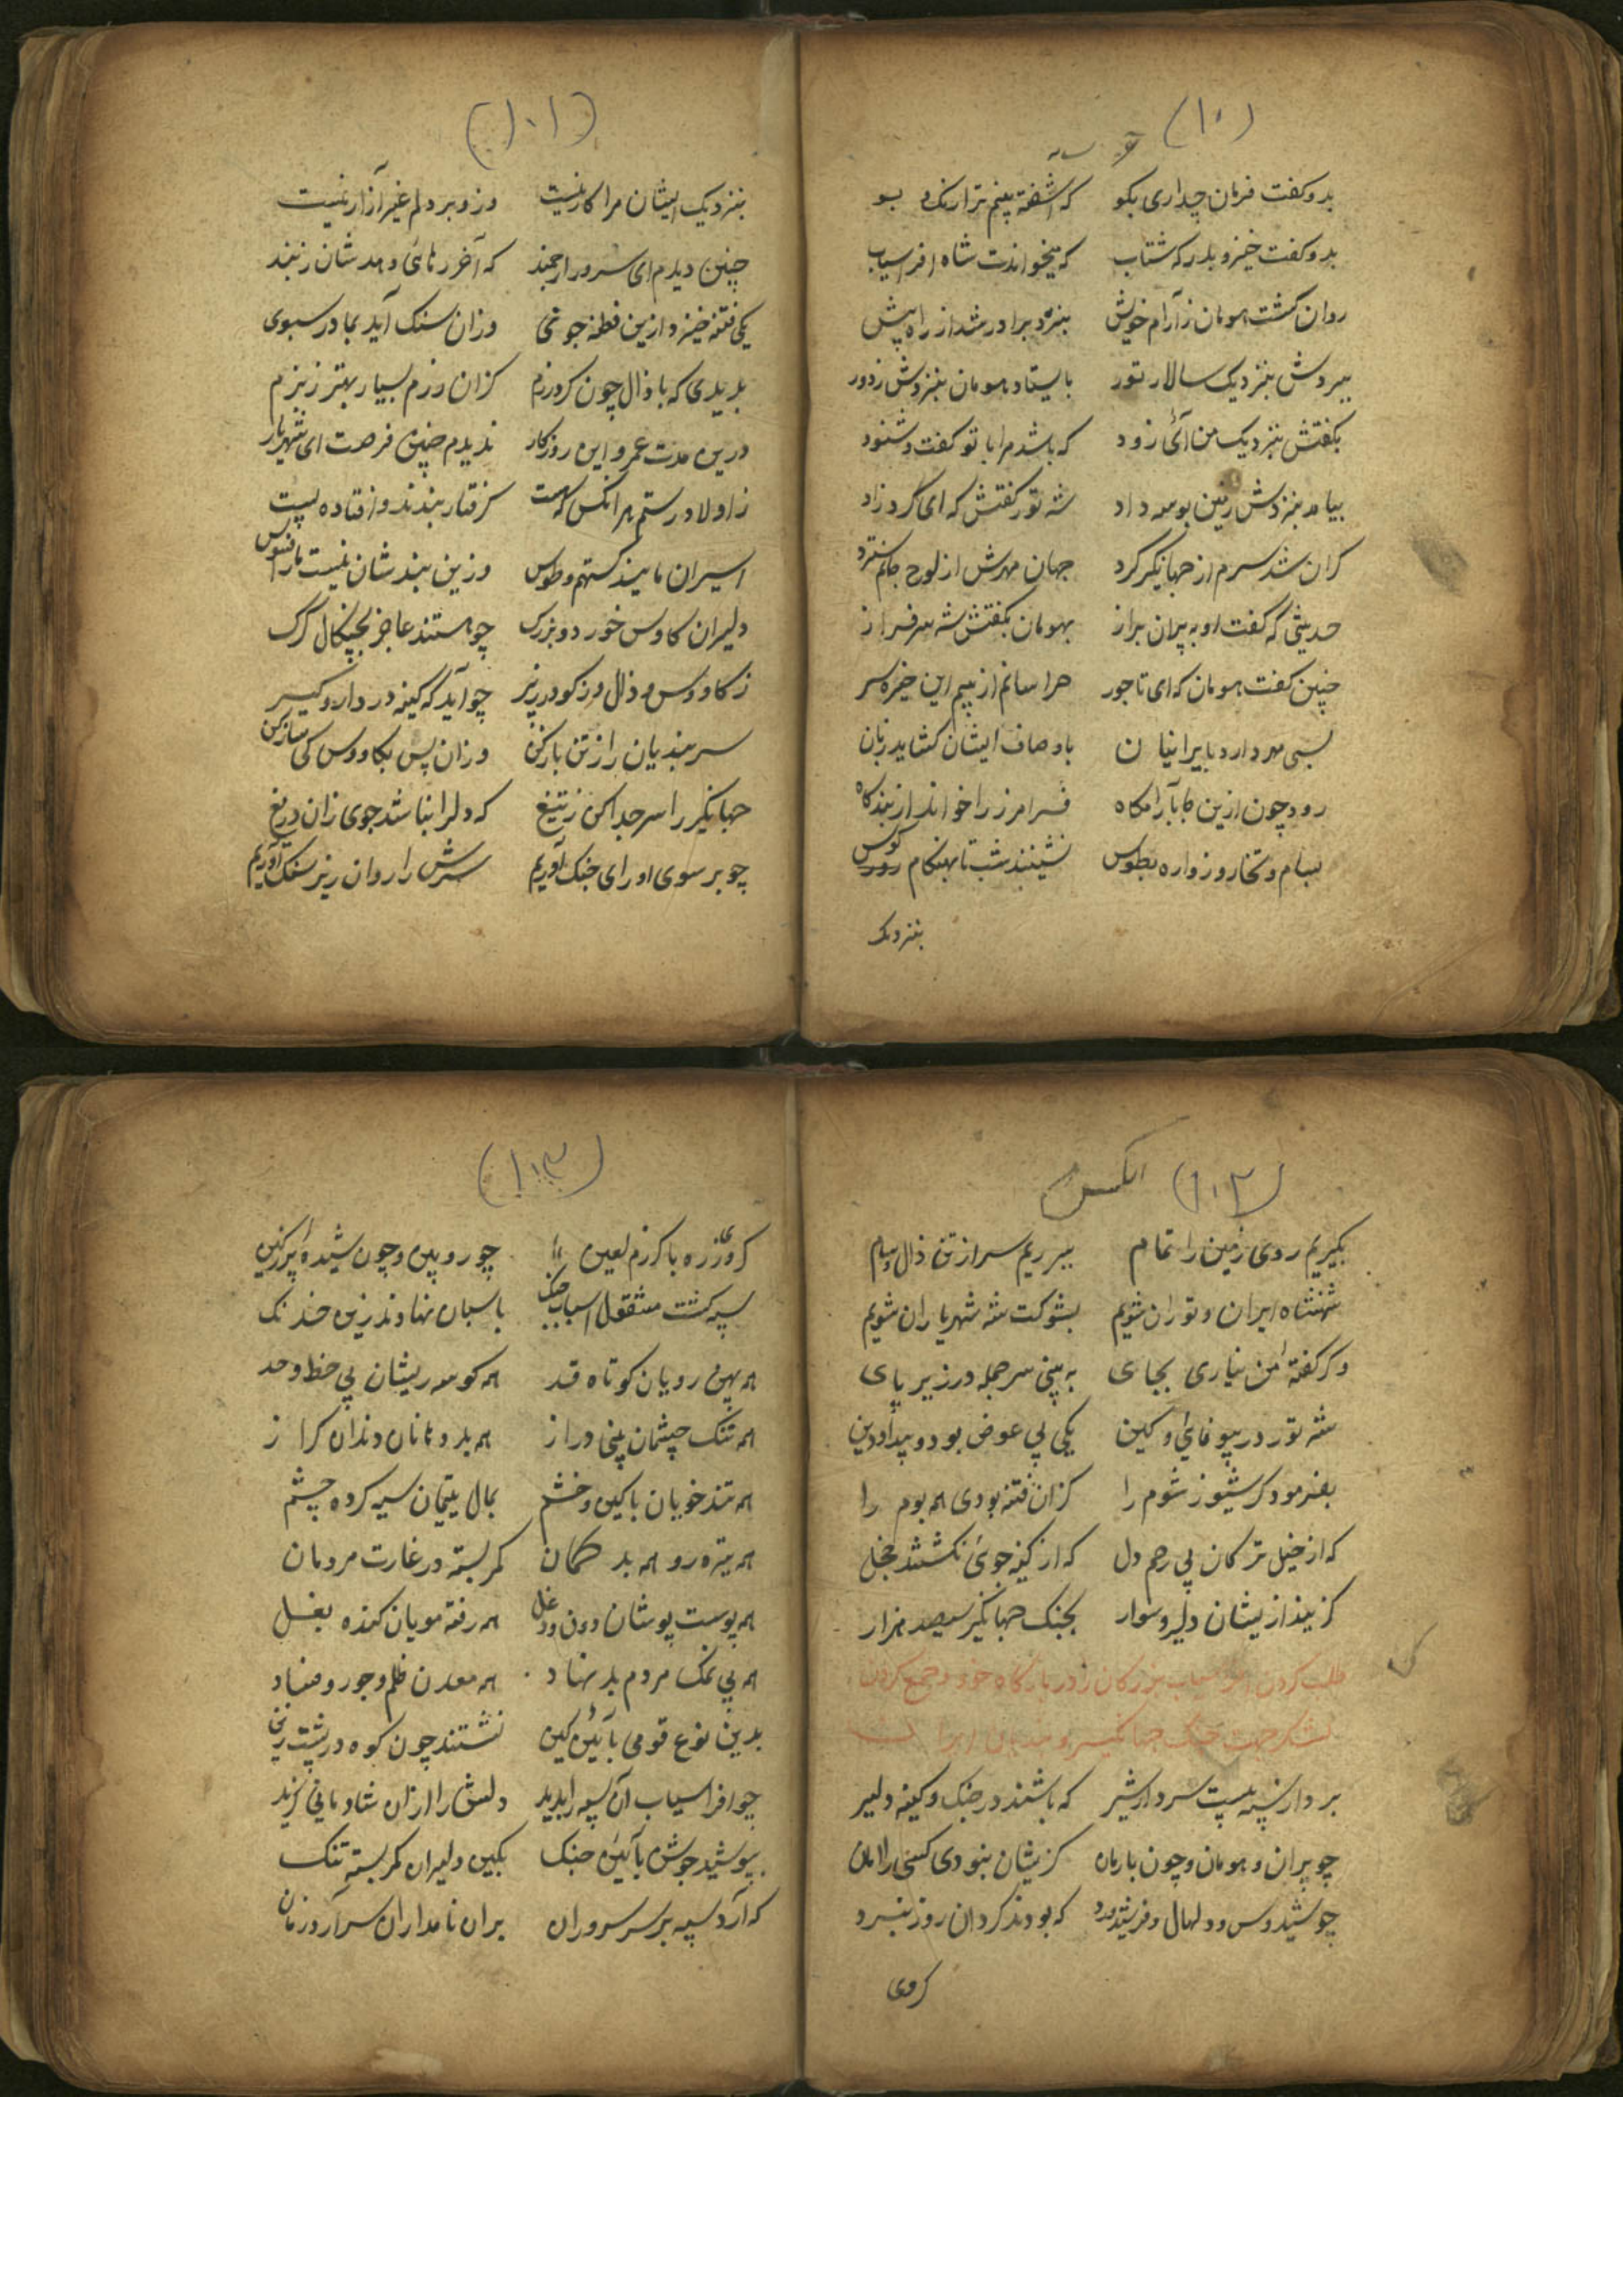 (۱۰)
بدو گفت فرمان چه داری بگو که آشفته بینم ترا رنگ و بو
بدو گفت خیز و بدرکه شتاب که میخواندت شاه افراسیاب
روان گشت هومان ز آرام خویش بنزد برادر شد از راه پیش
ببردش بنزدیک سالار تور بایستاد هومان بنزدش ز دور
بگفتش بنزدیک من آئی زود که باشد مرا با تو گفت و شنود
بیامد بنزدش زمین بوسه داد شه تور گفتش که ای گرد زاد
گران شد سرم از جهانگیر گرد جهان مهرش از لوح جانم سترد
حدیثی که گفت او به پیران براز بهومان بگفتش شه سرفراز
چنین گفت هومان که ای تاجور هراسانم از بیم این خیره سر
بسی مهر دارد بایرانیان باوصاف ایشان گشاید زبان
رود چون ازین جا بآرامگاه فرامرز را خواند از بندگاه
بسام و تخار و زواره بطوس نشینند شب تا بهنگام کوس
بنزدیک
(۱۰۱)
بنزدیک ایشان مرا کار نیست وز و بر دلم غیر آزار نیست
چنین دیدم ای سرور ارجمند که آخر رهائی دهدشان ز بند
یکی فتنه خیزد ازین فطنه جوی وزان سنگ آید بما در سبوی
بدیدی که با زال چون کرد رزم کزان رزم بسیار بهتر ز بزم
درین مدت عمر و این روزگار ندیدم چنین فرصت ای شهریار
ز اولاد رستم هر انکس که هست گرفتار بندند و افتاده پست
اسیران مایند گستهم و طوس وزین بندشان نیست ما را فسوس
دلیران کاوس خورد و بزرگ چو هستند عاجز بچنگال گرگ
ز کاووس و زال و ز گودرز پیر چو آید که کینه در دار و گیر
سر بندیان را ز تن باز کن وزان پس بکاووس کی ساز کن
جهانگیر را سر جدا کن ز تیغ که دلرا نباشد جوی زان دریغ
چو بر سوی او رای جنک آوریم سرش را روان زیر سنک آوریم
(۱۰۲)
بگیریم روی زمین را تمام ببریم سر از تن زال و سام
شهنشاه ایران و توران شویم بشوکت شه شهریاران شویم
وگر گفتهٔ من نیاری بجای به بینی سر جمله در زیر پای
شه تور در بیوفائی و کین یکی بی عوض بود و بیداد دین
بفرمود گرسیوز شوم را کزان فتنه بودی همه بوم را
که از خیل ترکان بی رحم دل که از کینه جوئی نگشتند خجل
گزیند ازیشان دلیر و سوار بجنک جهانگیر سیصد هزار
طلب کردن افراسیاب بزرگان را در بارگاه خود و جمع کردن
لشکر جهت جنک جهانگیر و
بر دار سپه بیست سردار شیر که باشند در جنک و کینه دلیر
چو پیران و هومان و چون بارمان کزیشان نبودی کسی را امان
چو شیدوس و دلهال و فرشیدورد که بودند گردان روز نبرد
کروی
(۱۰۳)
کروی زره با گرزم لعین چو رویین و چون شیدهٔ پر ز کین
سپه گشت مشغول اسباب جنک باسبان نهادند زین خدنک
همه پهن رویان کوتاه قد همه کوسه ریشان بی خط و خد
همه تنک چشمان بینی دراز همه بد دهانان دندان گراز
همه تند خویان با کین و خشم بمال یتیمان سیه کرده چشم
همه تیره رو همه بد گمان کمر بسته در غارت مردمان
همه پوست پوشان دون و دغل همه رفته مویان کنده بغل
همه بی نمک مردم بد نهاد همه معدن ظلم و جور و فساد
بدین نوع قومی بآئین کین نشستند چون کوه در پشت زین
چو افراسیاب آن سپه را بدید دلش را ازان شادمانی گزید
بپوشید جوشن بآئین جنک بکین دلیران کمر بسته تنک
که آرد سپه بر سر سروران بران نامداران سرآرد زمان